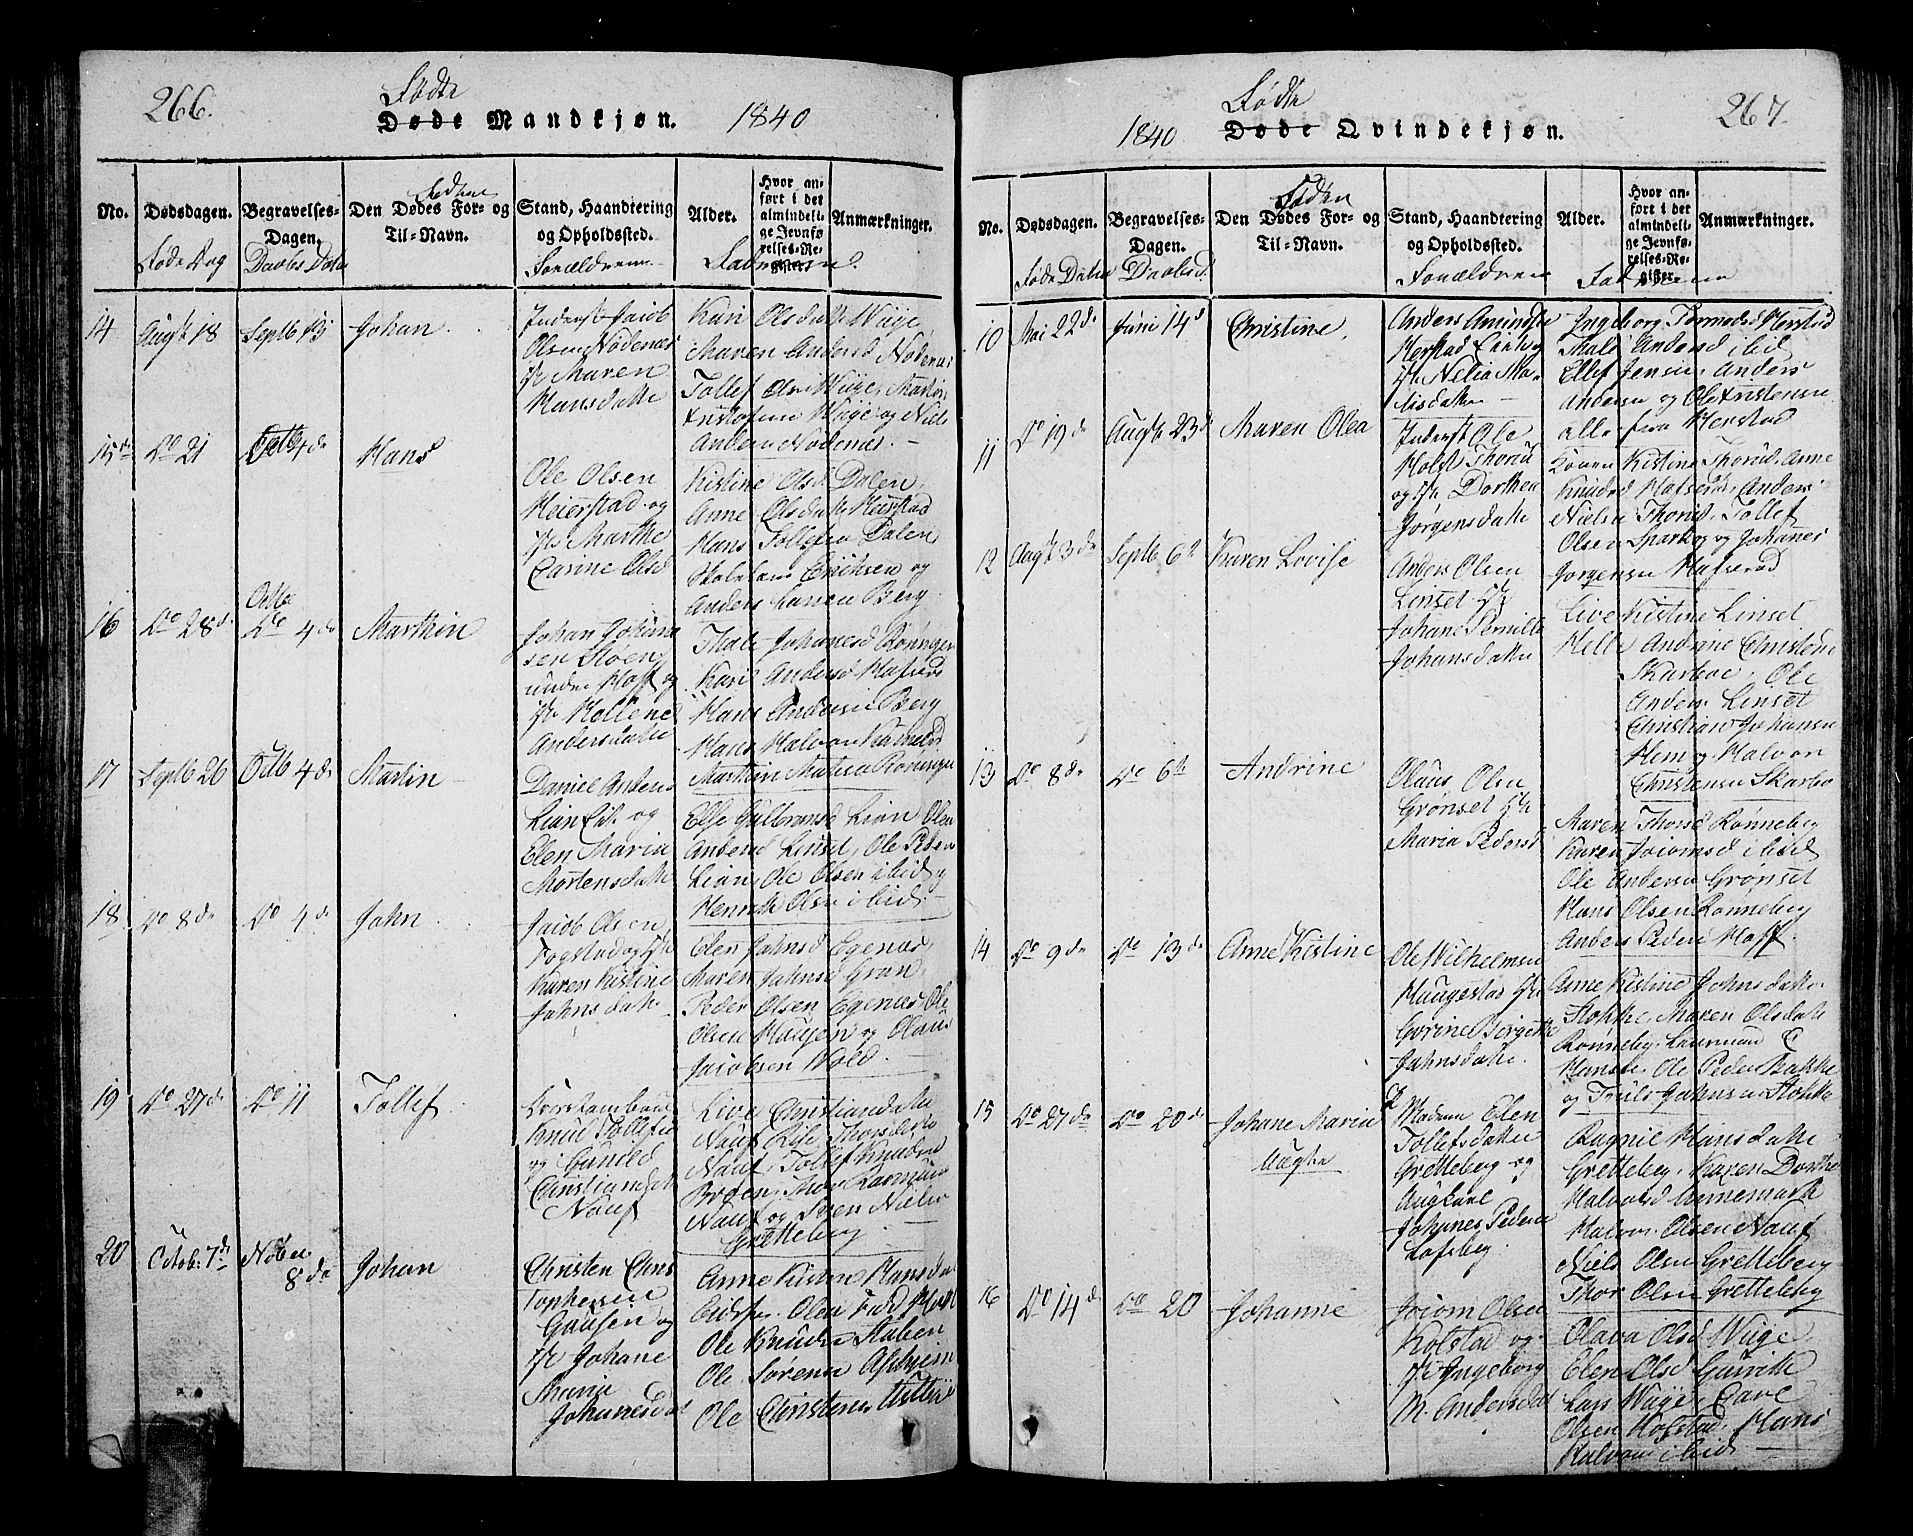 266.
Fødte
Døde Mandkjøn.
1840
No.
Dødsdagen.
Føde Dag
Begravelses-
Dagen.
Daabs Datu
Den Dødes For- og
Til-Navn.
Stand, Haandtering
og Opholdssted.
Forældrene
Alder.
Hvor an-
ført i det
almindeli-
ge Jevnfø-
relses-Re-
gister.
Anmærkninger.
14
Augst 18
Septb 13
Johan
Inderst Jacob
Olsen Nødenæs
Maren
Hansdatte
Kari Olsdatt Wüge
Maren Andersd Nødenæs
Tollef
Wüge og Niels
Andersen Nødenæs.
15de
Do 21
Octb 4de
Hans
Ole Olsen
Heierstad og
Marthe
Carine Olsd
Kistine Olsd Dalen,
Anne Olsdatt Heirstad
Hans Tollefsen Dalen
Eriksen og
Anders Larsen Berg.
16
Do 28de
Octbr
Do 4de
Marthin
Johan Johan
sen Støen
under Hoff og
Hellene
Andersdatte
Thale Johanesd Rønningen
Kari Andersd Hafserød
Hans Andersen Berg
Hans Halvorsen
Marthin
17
Septb 26
Octb 4de
Martin
Daniel Anders
Lian og
Elen Maria
Mortensdatte
Else Gulbransd Lian, Olea
Andersd Linset, Ole Peders
Lian, Ole Olsen ibid, og
Henrik Olsen ibid.
18
Do 8de
Do 4de
John
Jacob Olsen
Fogstad og
Karen Kistine
Jahnsdatte
Elen Jahnsd Egenæs,
Maren Jahnsd Gran,
Peder Olsen Egenæs, Ole
Olsen Haugen og Olaus
Jacobsen Wold.
19
Do 27de
Do 11
Tollef
Knud Tollefsen
og Gunild
Christiansdat
Nauf
Live Christiansdatte
Nauf, Lise Thorsdatte
Nauf, Tollef Knudsen
Bröen, Thor Rasmusen
Nauf og Sven Nielsen
Gretteberg
20
Octob: 7de
Nobr
8de
Johan
Christen Chris
tophersen
og
Johane
Maria
Johanesdat
Anne Kistine Hansdat
Olea
Ole Knudsen Staben
Ole Sørensen Asbjem
Ole Christensen
267.
1840
Fødte
Døde Qvindekjøn.
No.
Dødsdagen.
Føde Datu
Begravelses-
Dagen.
Daabsd
Den Dødes For- og
Til-Navn.
Stand, Haandtering
og Opholdssted.
Forældrene
Alder.
Hvor an-
ført i det
almindeli-
ge Jevnfø-
relses-Re-
gister.
Anmærkninger.
10
Mai 22de
Juni 14d
Christine.
Anders Amundse
Herstad
Ingeborg Tormodsd Herstad
Thale Andersd ibid
Ellef Jensen, Anders
Andersen og Ole Kristensen
alle fra Herstad
11
Do 19de
Augst 23de
Maren Olea
Inderst Ole
Holst Thorud
og Dorthea
Jørgensdatte
Karen Kistine Thorud, Anne
Knudsd Hafserød, Anders
Nielsen Thorud, Tollef
Olsen Spark og Johanes
Jørgensen Hafserød
12
Augst 3de
Septb 6te
Karen Lovise
Anders Olsen
Linset
Johane Pernille
Johansdatte
Live Kistine Linset
Helle Andrine Christens
Skarboe, Ole
Anders Linset
Christian Johansen
Hem og Halvor
Christensen Skarbo
13
Do 8de
Do 6te
Andrine
Olaus Olsen
Grønset
Maria Pedersd
Maren Thorsd Rønneberg
Karen Joromsd ibid
Ole Andersen Grønset
Hans Olsen Rønneberg
Anders Pedersen Hoff.
14
Do 9de
Do 13de
Anne Kistine
Ole Wilhelmsen
Haugestad
Birgette
Jahnsdatte.
Anne Kistine Johnsdatte
Stokke, Maren Olsdatte
Rønneberg,
Hansen, Ole Peder Bakke
og Truls Jahnsen Stokke
15
Do 27de
Do 20de
Johane Maria
Augta
Madam Elen
Tollefsdatte
Gretteberg og
Johanes Peders
Lofsberg.
Ragnil Hansdatte
Gretteberg, Karen Dorthe
Halvorsd Annemark
Halvor Olsen Nauf
Niels Olsen Gretteberg
Thor Olsen Gretteberg
16
Do 14de
Do 20
Johanne
Joiom Olsen
Kolstad og
Ingeborg
M. Andersdat
Olava Olsd Wüge,
Elen Olsd
Lars Wüge,
Olsen Kolstad, Hans
Halvorsen ibid